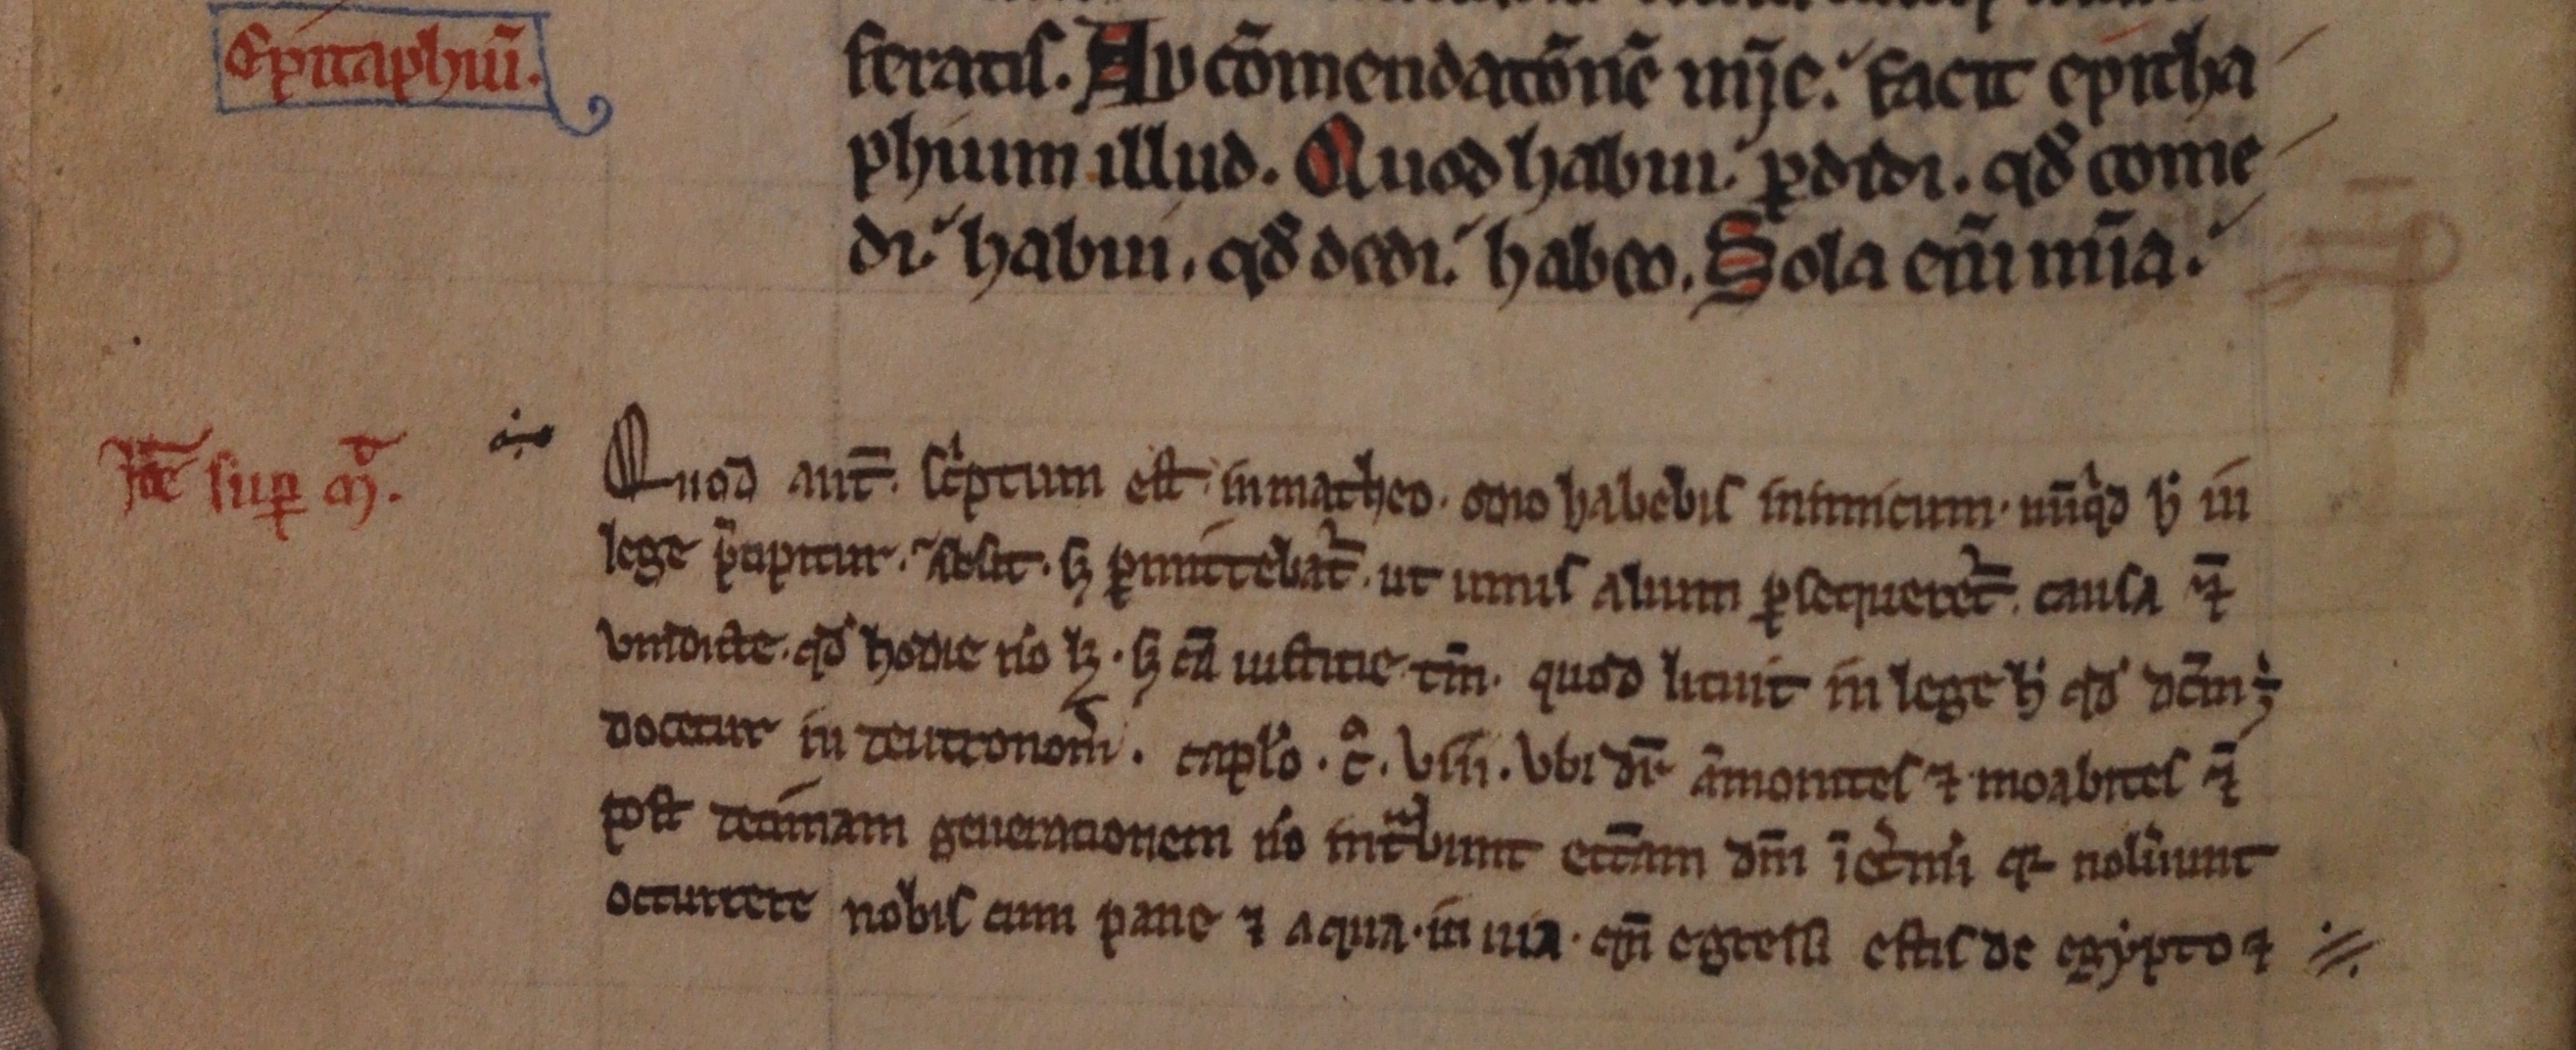 Epitaphiū.
feratis. Ad cōmendatōnē mīe. facit epitha
phium illud. Quod habui. ꝑdidi. qđ come
di. habui. qđ dedi. habeo. Sola enī mīa.
sup̱ m̄.
Quod aut̄. sc̍ptum est in matheo. odio habebis inimicum. nūq̍d h̍ in
lege p̄cipitur. Absit. sꝫ ꝑmittebat᷑. ut unus alium ꝑsequeret᷑. causa ⁊̄
vindicte. qđ hodie nō lꝫ. sꝫ cā iusticie tm̄. quod licuit in lege h̍ qđ dcm̄ ÷
docetur in deutronom̄. capło. c̊. viii. vbi dr̄ āmonites ⁊ moabites ⁊̄
post decimam generationem nō int̾bunt ecc̄am dn̄i ī et̾nū qr nolu̾unt
occurrere nobis cum pane ⁊ aqua. in uia. qn̄ egressi estis de egypto ⁊